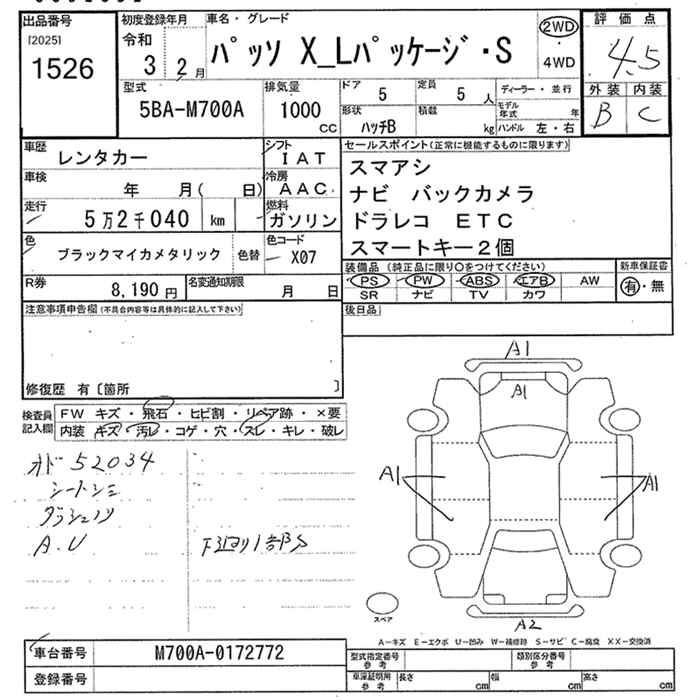 出品番号
[2025]
1526
初度登録年月
令和
3 2月
車名・グレード
パッソ X_Lパッケージ・S
2WD
・
4WD
評価点
4.5
外装 内装
B C
型式
5BA-M700A
排気量
1000
cc
ドア
5
定員
5 人
形状
ハッチB
積載
kg
ディーラー・並行
モデル年式 年
ハンドル 左・右
車歴
レンタカー
シフト
IAT
車検
年 月( 日)
冷房
AAC
走行
5万2千040 km
燃料
ガソリン
色
ブラックマイカメタリック
色替
色コード
X07
R券
8,190 円
名変通知期限
月 日
セールスポイント(正常に機能するものに限ります)
スマアシ
ナビ バックカメラ
ドラレコ ETC
スマートキー2個
装備品 (純正品に限り○をつけてください)
新車保証書
PS PW ABS エアB AW
SR ナビ TV カワ
有・無
後日品
注意事項申告欄(不具合内容等は具体的に記入して下さい)
修復歴 有〔箇所 〕
検査員記入欄
FW キズ・飛石・ヒビ割・リペア跡・×要
内装・キズ・汚レ・コゲ・穴・スレ・キレ・破レ
オド 52034
シートシミ
A.U
下廻り1部S
A1
A1
A1
A1
A2
スペア
A-キズ E-エクボ U-凹み W-補修跡 S-サビ C-腐食 XX-交換済
車台番号
M700A-0172772
登録番号
型式指定番号
参考
類別区分番号
参考
車庫証明用
参考
長さ cm
幅 cm
高さ cm